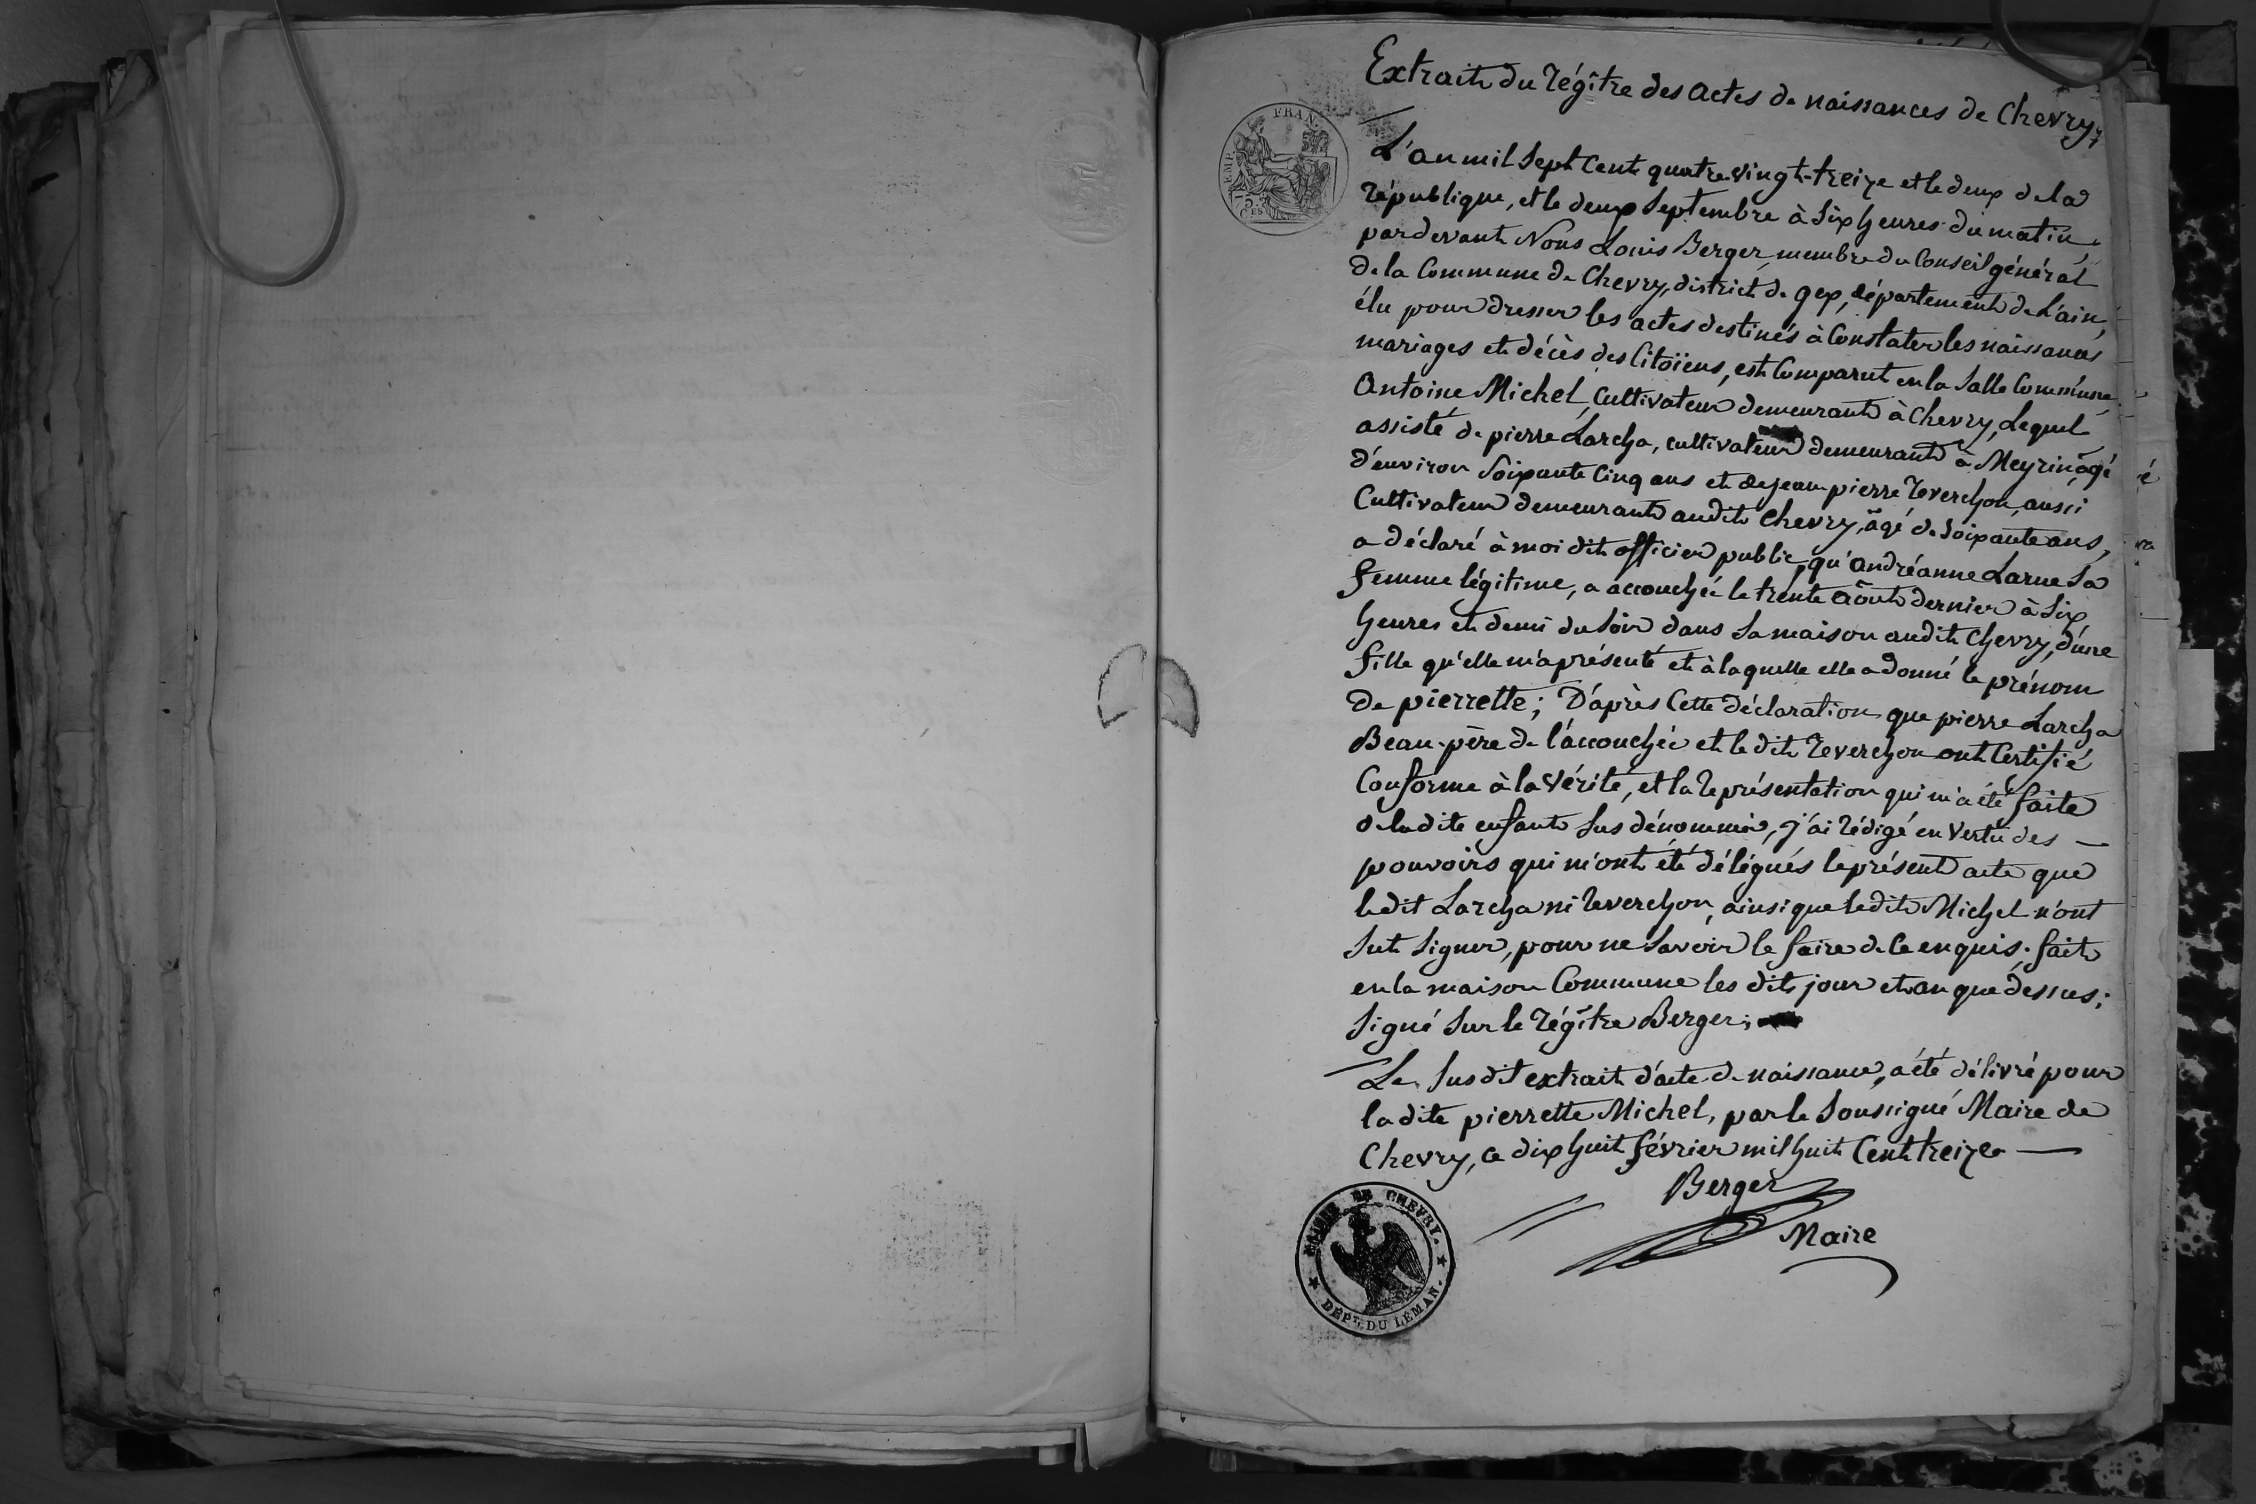 Extrait du régître des actes de naissances de Chevry,
EMP. FRAN.
75 Ces
L'an mil sept cent quatre vingt-treize et le deux de la
république, et le deux septembre à six heures du matin,
pardevant Nous Louis Berger, membre du Conseil général
de la Commune de Chevry, district de gex, département de l'ain,
élu pour dresser les actes destinés à Constater les naissances
mariages et décès des Citoïens, est Comparut en la salle Commune,
Antoine Michel, Cultivateur demeurant à Chevry, lequel
assisté de pierre Larcha, cultivateur demeurant à Meyrin, âgé
d'environ soixante cinq ans et de jean pierre Reverchon, aussi
Cultivateur demeurant audit Chevry, âgé de soixante ans,
a déclaré à moi dit officier public, qu'andréanne Larue sa
femme légitime, a accouchée le trente août dernier à six
heures et demi du soir dans sa maison audit Chevry, d'une
fille qu'elle m'a présenté et à laquelle elle a donné le prénom
de pierrette; D'après Cette déclaration que pierre Larcha
Beau-père de l'accouchée et le dit Reverchon ont Certifié
Conforme à la Vérité, et la représentation qui m'a été faite
de ladite enfant sus dénommée, j'ai rédigé en Vertu des
pouvoirs qui m'ont été délégués le présent acte que
ledit Larcha ni Reverchon, ainsi que ledit Michel n'ont
sut signer, pour ne savoir le faire de ce enquis; fait
en la maison Commune les dits jour et an que dessus;
signé sur le régître Berger;
Le susdit extrait d'acte de naissance, a été délivré pour
la dite pierrette Michel, par le soussigné Maire de
Chevry, ce dix huit février mil huit Cent treize
Berger
Maire
MAIRIE DE CHEVRI.
DÉPT. DU LÉMAN.